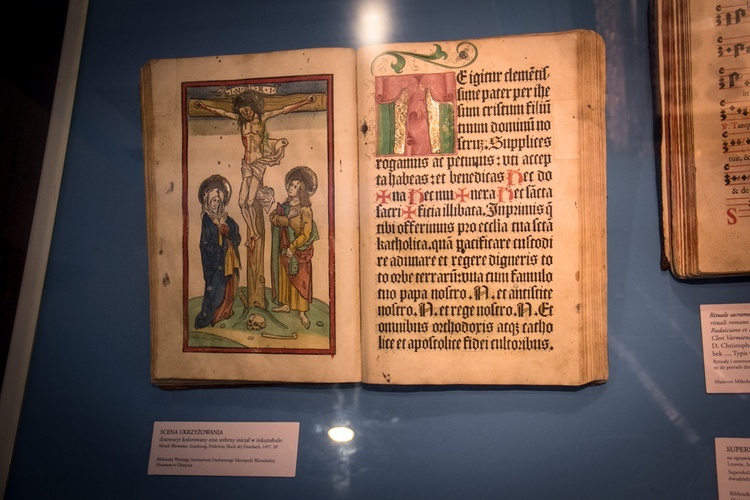 I·N·R·I
E igitur clemētis-
sime pater per ihe
sum cristum filiū
tuum dominū no
strū. Supplices
rogamus ac petimus: vti accep
ta habeas: et benedicas Hec do
✠na Hec mu✠nera Hec sācta
sacri✠ficia illibata. Inprimis q̄
tibi offerimus pro ecclīa tua sctā
katholica. quā pacificare custodi
re adunare et regere digneris to
to orbe terrarū: vna cum famulo
tuo papa nostro. N. et antistite
nostro. N. et rege nostro. N. Et
omnibus orthodoxis atq; catho
lice et apostolice fidei cultoribus.
SCENA UKRZYŻOWANIA
drzeworyt kolorowany oraz srebrny inicjał w inkunabule:
Biblioteka Wyższego Seminarium Duchownego Metropolii Warmińskiej
Hosianum w Olsztynie
S
Rituale sacrame
rituali romano
Rudaiciano et
Cleri Varmien
D. Christoph
bek ..., Typis
SUPER